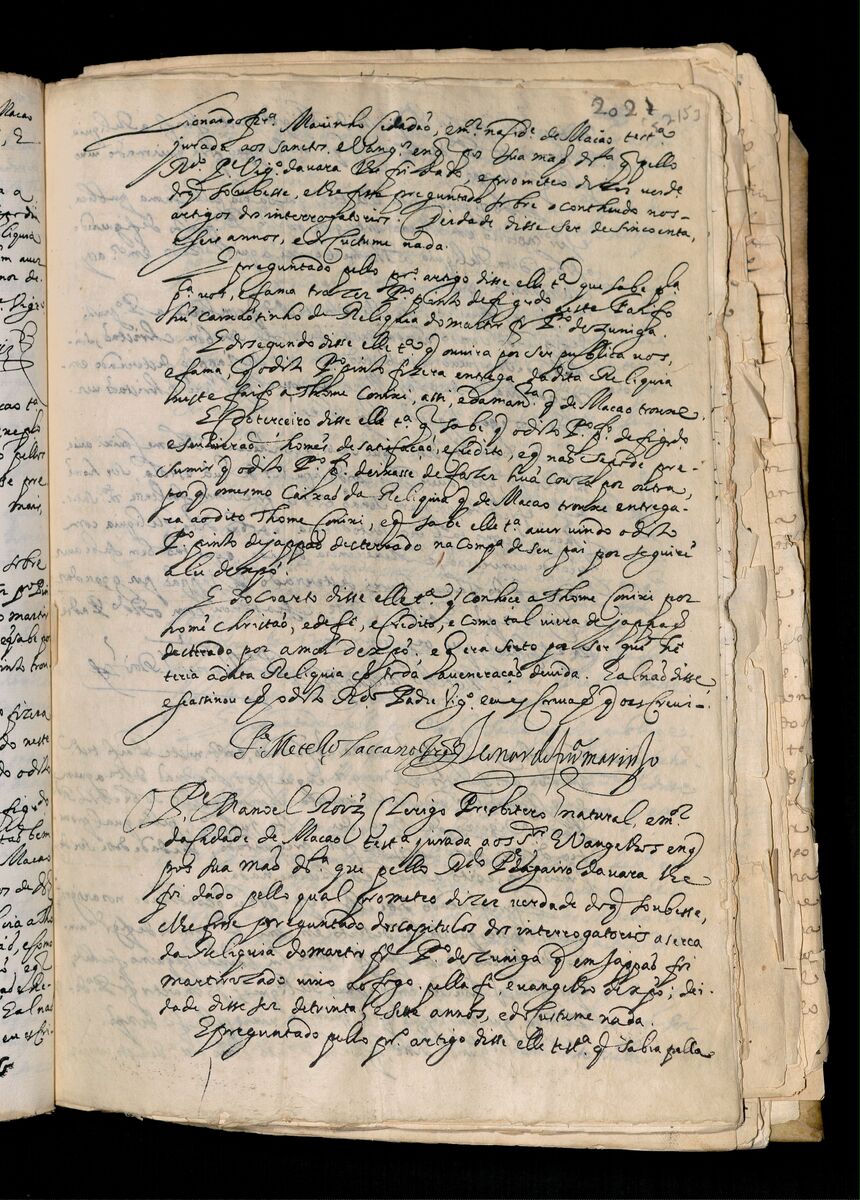 2021
2153
Lionardo frª Marinho Cidadaõ, e mºr na Cidᵉ de Macao testª
jurada aos sanctos Evangºs em q̃ pos sua maõ dtª q̃ pello
Rdº Pᵉ Vigrº da vara lhe foi dado, e prometeo dizer verdᵉ
do q̃ soubesse, e lhe fosse preguntado sobre o contheudo nos
artigos dos interrogatorios. De idade disse ser de sincoenta,
e seis annos, e do custume nada.
E preguntado pello prº artigo disse elle tª que sabe pla
pª vos, e fama trazer Pº pinto de figrdo neste Parifo
hũ caixaõtinho da Reliquia do martir fr Pº de Zuniga.
E do segundo disse elle tª q̃ ouvira por ser publica vos,
e fama q̃ o dito Pº pinto fizera entrega da dita Reliquia
neste faifo a Thome Conixi, assi, e da manrª q̃ de Macao trouxe
E do terceiro disse elle tª q̃ sabe q̃ o dito Pº pᵗº de figrdo
e seu irmaõ homẽs de satisfacaõ, e Credito, e q̃ naõ se pode pre-
sumir q̃ o dito Pº pᵗº deixasse de fazer huã couza por outra,
por q̃ o mesmo Caixaõ da Reliquia q̃ de Macao trouxe entrega-
ra ao dito Thome Conixi, e q̃ sabe elle tª aver vindo o dito
Pº pinto de jappaõ desterrado na Compª de seu pai por seguir
a lei de xp̃o
E do Coarto disse elle tª q̃ conhece a Thome Conixi por
homẽ christaõ, e de fe, e Credito, e como tal viera de jappaõ
desterrado por amor de xp̃o, e q̃ era serto por ser quẽ he
teria a dita Reliquia cõ toda a veneracaõ devida. E al naõ disse
e se assinou cõ o dito Rdº Padre Vigrº, e eu escrivaõ q̃ o escrevi-
Pᵉ Metello Saccano Lionardo frª marinho
O Pᵉ Manoel Roiz Clerigo Presbitero natural, e mºr
da Cidade de Macao testª jurada aos Stºs Evangelhos em q̃
pos sua maõ dtª que pello Rdº Pᵉ Vigairo da vara lhe
foi dado pello qual prometeo dizer verdade do q̃ soubesse,
e lhe fosse preguntado dos capitulos dos interrogatorios aserca
da Reliquia do martir fr Pº de Zuniga q̃ em Jappaõ foi
martirizado vivo ao fogo pella fe, e vangelho de xp̃o; de i-
dade disse ser de trinta, e sette annos, e do custume nada.
E preguntado pello prº artigo disse elle testª q̃ sabia pella